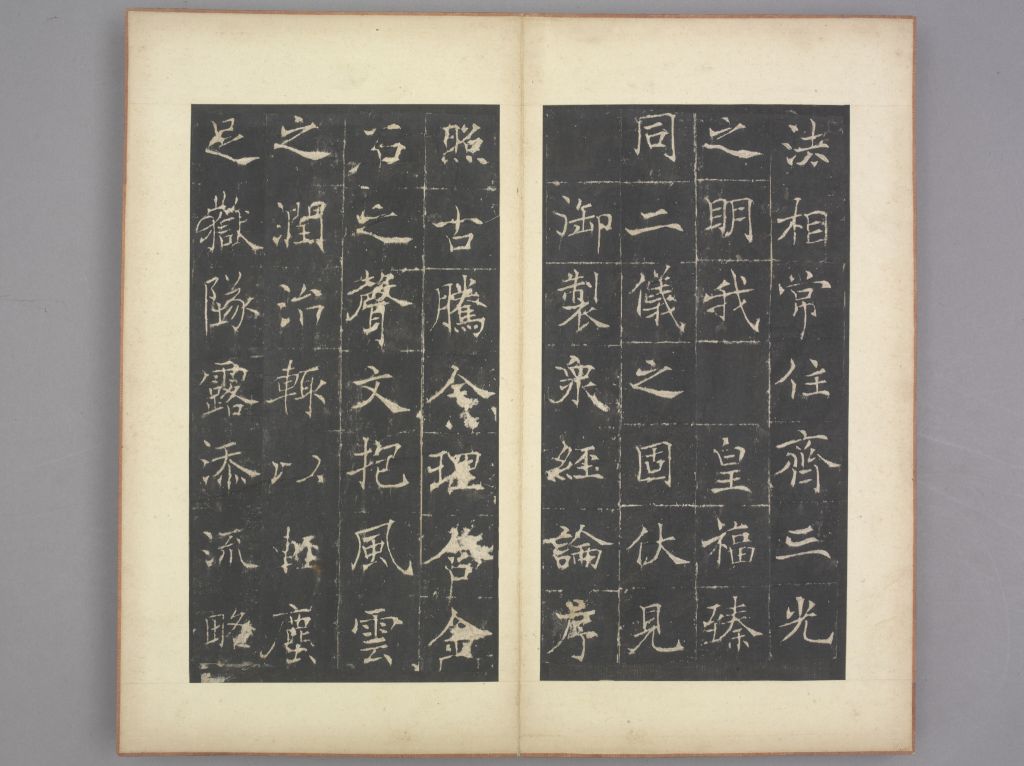 法相常住齊三光
之明我皇福臻
同二儀之固伏見
御製衆經論序
照古騰今理含金
石之聲文抱風雲
之潤治輙以輕塵
足嶽墜露添流略